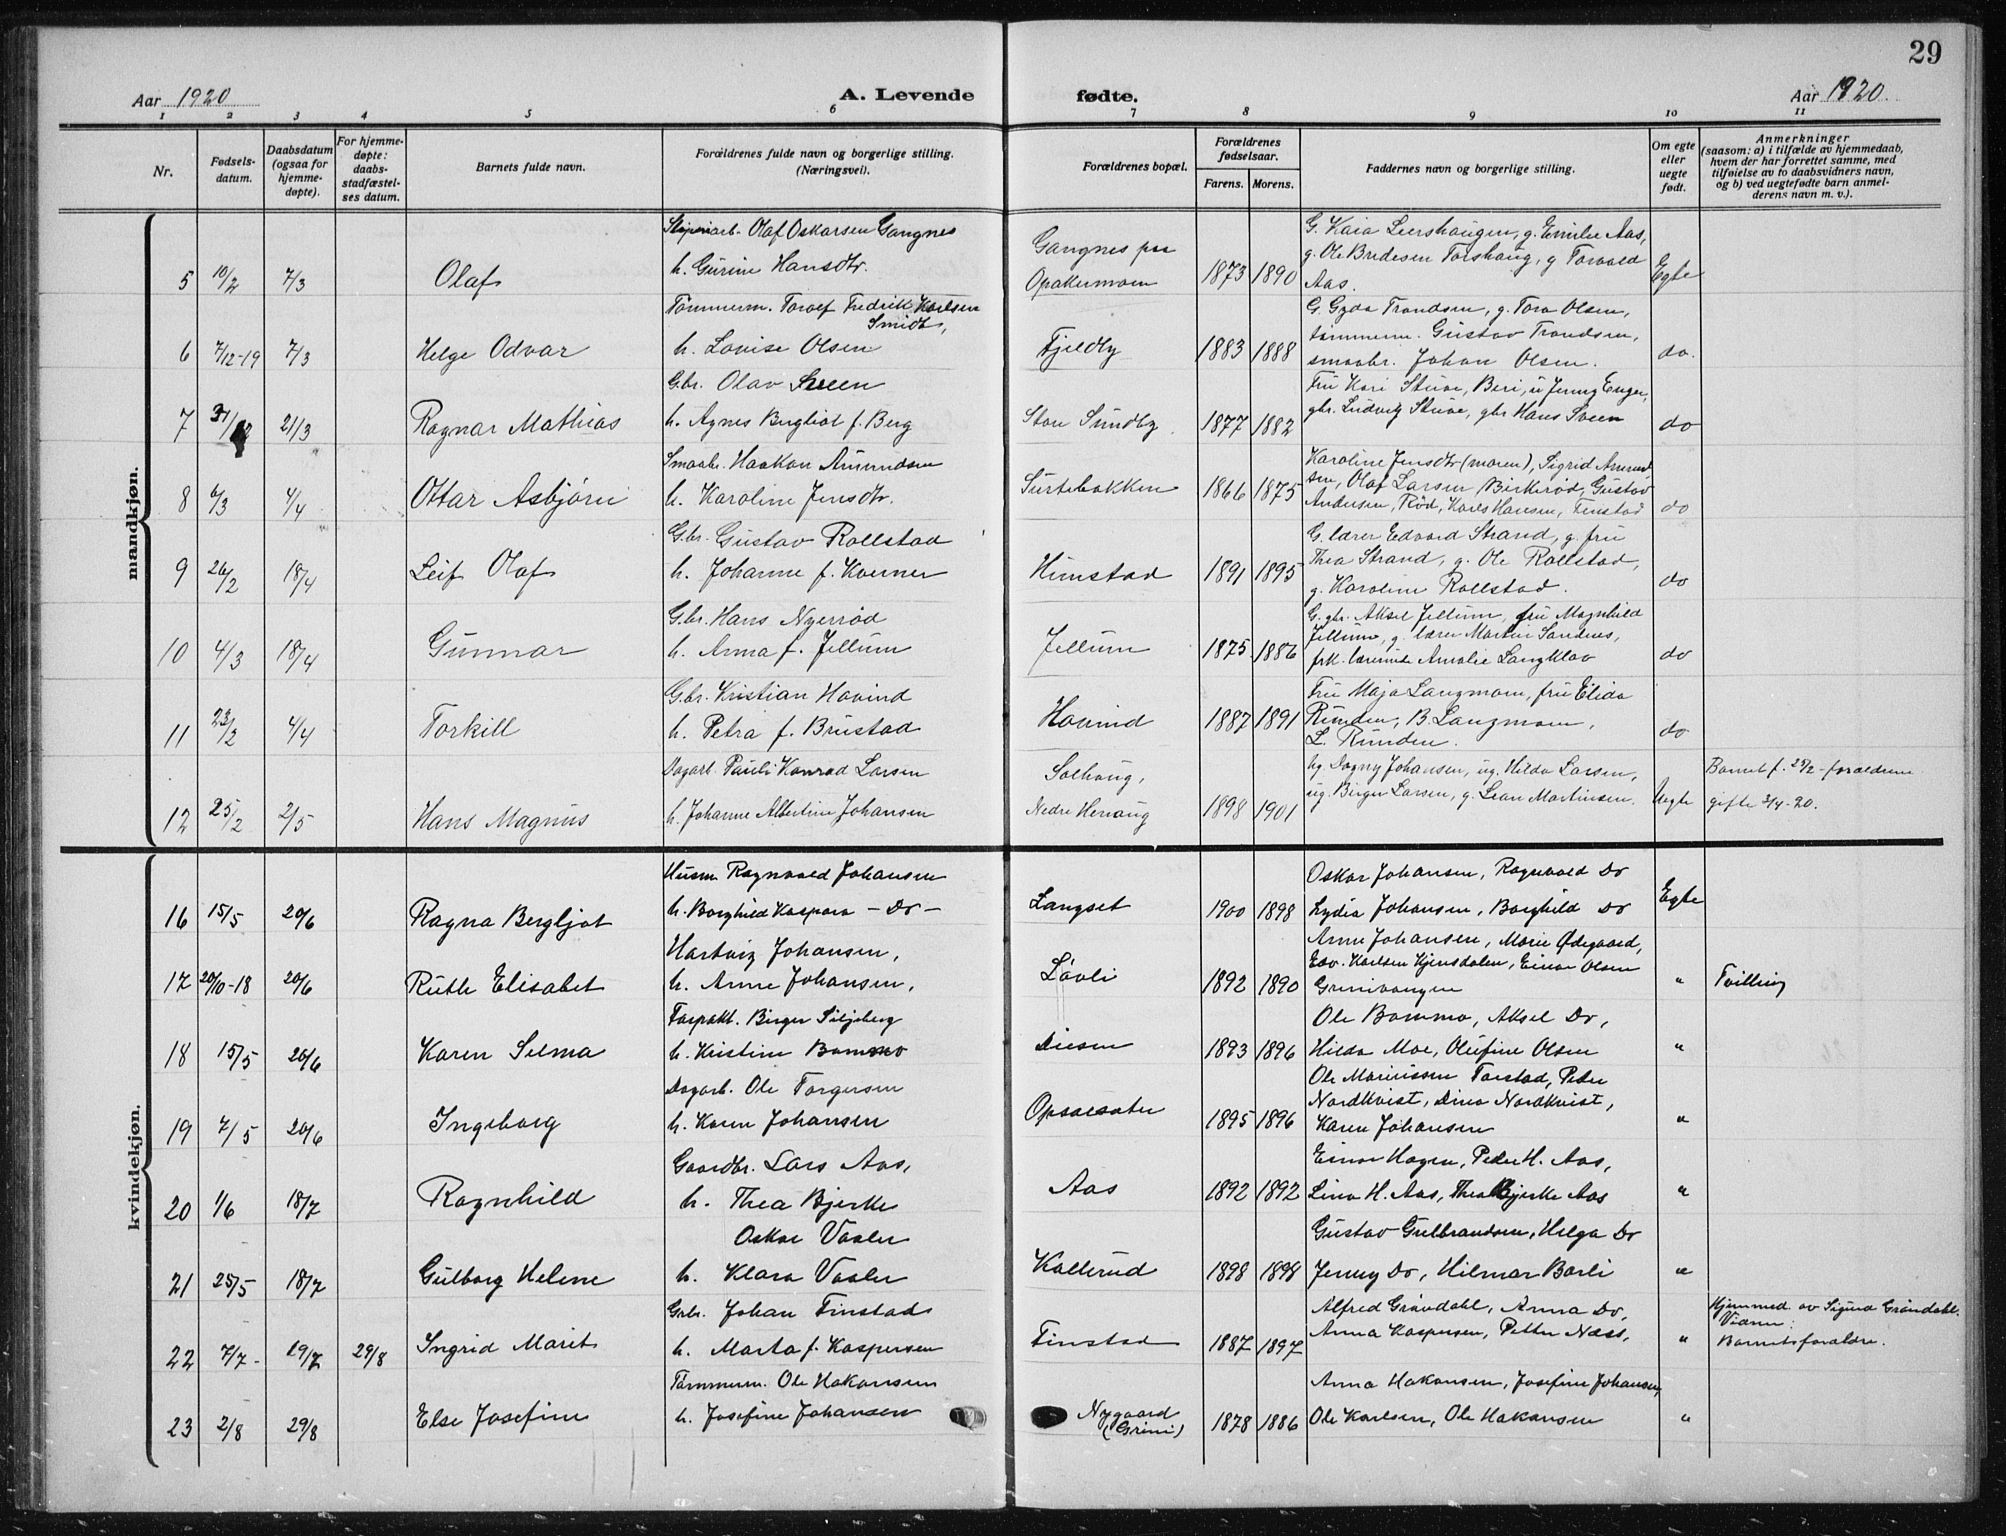 29
Aar 1920 A. Levende fødte. Aar 1920.
1 2 3 4 5 6 7 8 9 10 11
Nr.
Fødsels-
datum.
Daabsdatum
(ogsaa for
hjemme-
døpte).
For hjemme-
døpte:
daabs-
stadfæstel-
ses datum.
Barnets fulde navn.
Forældrenes fulde navn og borgerlige stilling.
(Næringsvei).
Forældrenes bopæl.
Forældrenes
fødselsaar.
Farens. Morens.
Faddernes navn og borgerlige stilling.
Om egte
eller
uegte
født.
Anmerkninger
(saasom: a) i tilfælde av hjemmedaab,
hvem der har forrettet samme, med
tilføielse av to daabsvidners navn,
og b) ved uegtefødte barn anmel-
derens navn m. v.).
mandkjøn.
5 10/2 7/3 Olaf
Olaf Oskarsen Gangnes
h. Gurine Hansdtr.
Gangnes paa
Opakermoen
1873 1890
G. Kaia Leershaugen, g. Emilie Aas,
g. Ole Bredesen Torshaug, g Torvald
Aas.
Egte
6 7/12-19 7/3 Helge Odvar
Tømmerm. Toralf Fredrik Karlsen
Smidt,
h. Lovise Olsen
Fjeldby
1883 1888
G. Gyda Trondsen, g. Tora Olsen,
tømmerm. Gustav Trondsen,
smaabr. Johan Olsen.
do.
7 21/3 Ragnar Mathias
Gbr. Olav Sveen
h. Agnes Bergliot f. Berg
Store Sundby
1877 1882
Fru Kari Stuve, Beri, u Jenny Enger,
gbr. Ludvig Stuve, gbr Hans Sveen
do
8 6/3 4/4 Ottar Asbjørn
Smaabr. Haakon Amundsen
h. Karoline Jensdtr.
Surtebakken
1866 1875
Karoline Jensdtr (moren), Sigrid Amund
sen, Olaf Larsen Birkerød, Gustav
Andersen, Rød, Karls Hansen, Finstad
do
9 26/2 18/4 Leif Olaf
Gbr. Gustav Rollstad
h. Johanne f. Kverner
Himstad
1891 1895
G. lærer Edvard Strand, g. fru
Thea Strand, g. Ole Rollstad,
g. Karoline Rollstad.
do
10 4/3 18/4 Gunnar
Gbr. Hans Nyerrød
h. Anna f. Jellum
Jellum
1875 1886
G. gbr. Aksel Jellum, fru Magnhild
Jellum, g. lærer Martin Sandnes,
frk. lærerinde Amalie Langklav
do
11 23/2 4/4 Torkill
Gbr. Kristian Hovind
h. Petra f. Brustad
Hovind
1887 1891
Fru Maja Langmoen, fru Elida
Runden, B. Langmoen,
L. Runden.
do
12 25/2 2/5 Hans Magnus
Dagarb. Pauli Konrad Larsen
h. Johanne Albertine Johansen
Solhaug,
Nedre Henaug
1898 1901
ug. Dagny Johansen, ug. Hilda Larsen,
ug. Birger Larsen, g. Lean Martinsen.
Uegte
Barnet f. 25/2 - forældrene
gifte 3/4-20.
kvindekjøn.
16 15/5 20/6 Ragna Bergljot
Husm Ragnvald Johansen
h. Borghild Kaspara - Do -
Langset
1900 1898
Oskar Johansen, Ragnvald Do
Lydia Johansen, Borghild Do
Egte
17 20/10-18 20/6 Ruth Elisabet
Hartvig Johansen,
h. Anne Johansen,
Løvli
1892 1890
Anne Johansen, Marie Ødegaard,
Edv. Karlsen Kjensdalen, Einar Olsen
Grinivangen
" Tvilling
18 15/5 20/6 Karen Selma
Forpakt. Birger Siljeberg
h. Kristine Bommo
Diesen
1893 1896
Ole Bommo, Aksel Do,
Hilda Moe, Olufine Olsen
"
19 7/5 20/6 Ingeborg
Dagarb. Ole Torgersen
h. Karen Johansen
Opsalsæter
1895 1896
Ole Mariussen Torstad, Peder
Nordkvist, Dina Nordkvist,
Karen Johansen
"
20 1/6 18/7 Ragnhild
Gaardbr. Lars Aas,
h. Thea Bjerke
Aas
1892 1892
Einar Hagen, Peder H. Aas,
Lina H. Aas, Thea Bjerke Aas
"
21 25/5 18/7 Gulborg Helene
Oskar Vaaler
h. Klara Vaaler
Kollerud
1898 1898
Gustav Gulbrandsen, Helga Do
Jenny Do, Hilmar Borli
"
22 7/7 - 19/7 29/8 Ingrid Marit
Grbr. Johan Finstad
h. Marta f. Kaspersen
Finstad
1887 1897
Alfred Grøndahl, Anna Do,
Anna Kaspersen, Petter Næss,
"
Hjemmed. av Sigrid Grøndahl.
Vidner:
Barnets forældre.
23 2/8 29/8 Else Josefine
Tømmerm. Ole Hakansen
h. Josefine Johansen
Nygaard
(Grini)
1878 1886
Anna Hakonsen, Josefine Johansen,
Ole Karlsen, Ole Hakansen
"